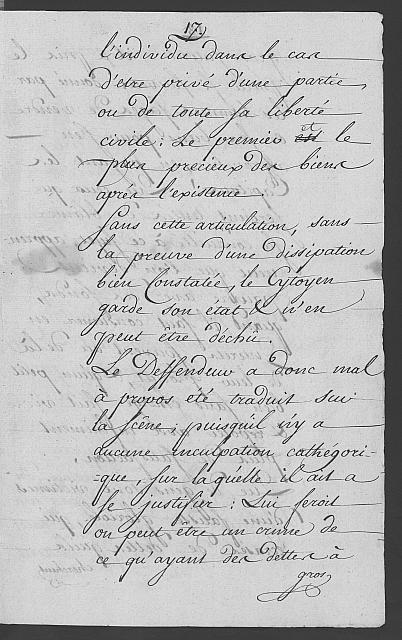 17
l'individu dans le cas
d'etre privé d'une partie
ou de toute sa liberté
civile : Le premier et le
plus precieux des biens
aprés l'existence.
Sans cette articulation, sans
la preuve d'une dissipation
bien Constatée, le Cytoyen
garde son état & n'en
peut être déchu.
Le Deffendeur a donc mal
à propos été traduit sur
la scêne, puisqu'il n'y a
aucune inculpation cathégori-
-que, sur laquelle il ait a
se justifier : Lui feroit
on peut être un crime de
ce qu'ayant des dettes à
gros